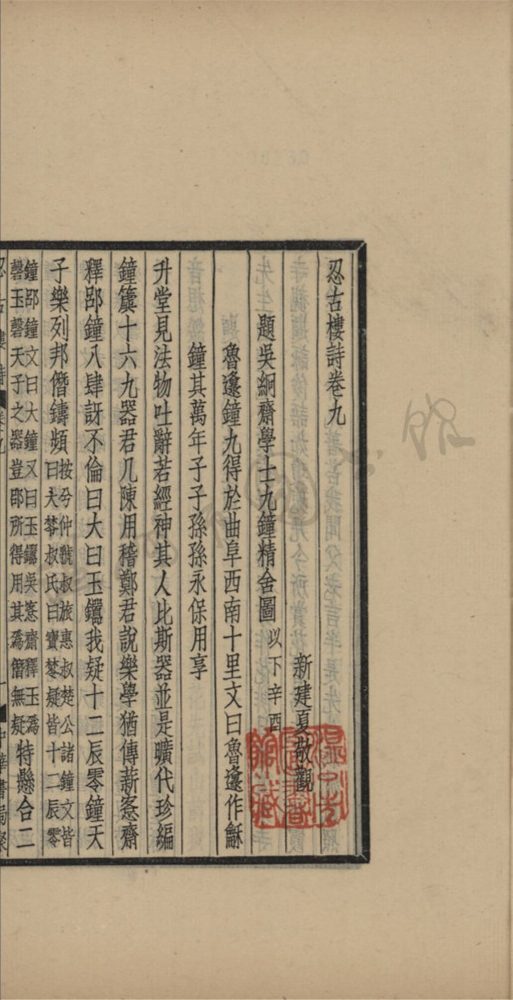 忍古樓詩卷九
新建夏敬觀
題吳絅齋學士九鐘精舍圖以下辛酉
魯邍鐘九得於曲阜西南十里文曰魯邍作龢
鐘其萬年子子孫孫永保用享
升堂見法物吐辭若經神其人比斯器並是曠代珍編
鐘簴十六九器君几陳用稽鄭君說樂學猶傳薪愙齋
釋郘鐘八肆訝不倫曰大曰玉鑐我疑十二辰零鐘天
子樂列邦僭鑄頻按兮仲虢叔旅惠叔楚公諸鐘文皆
曰大棽叔氏曰寶棽疑皆十二辰零
鐘郘鐘文曰大鐘又曰玉鑐吳愙齋釋玉為
磬玉磬天子之器豈郘所得用其為僭無疑特懸合二